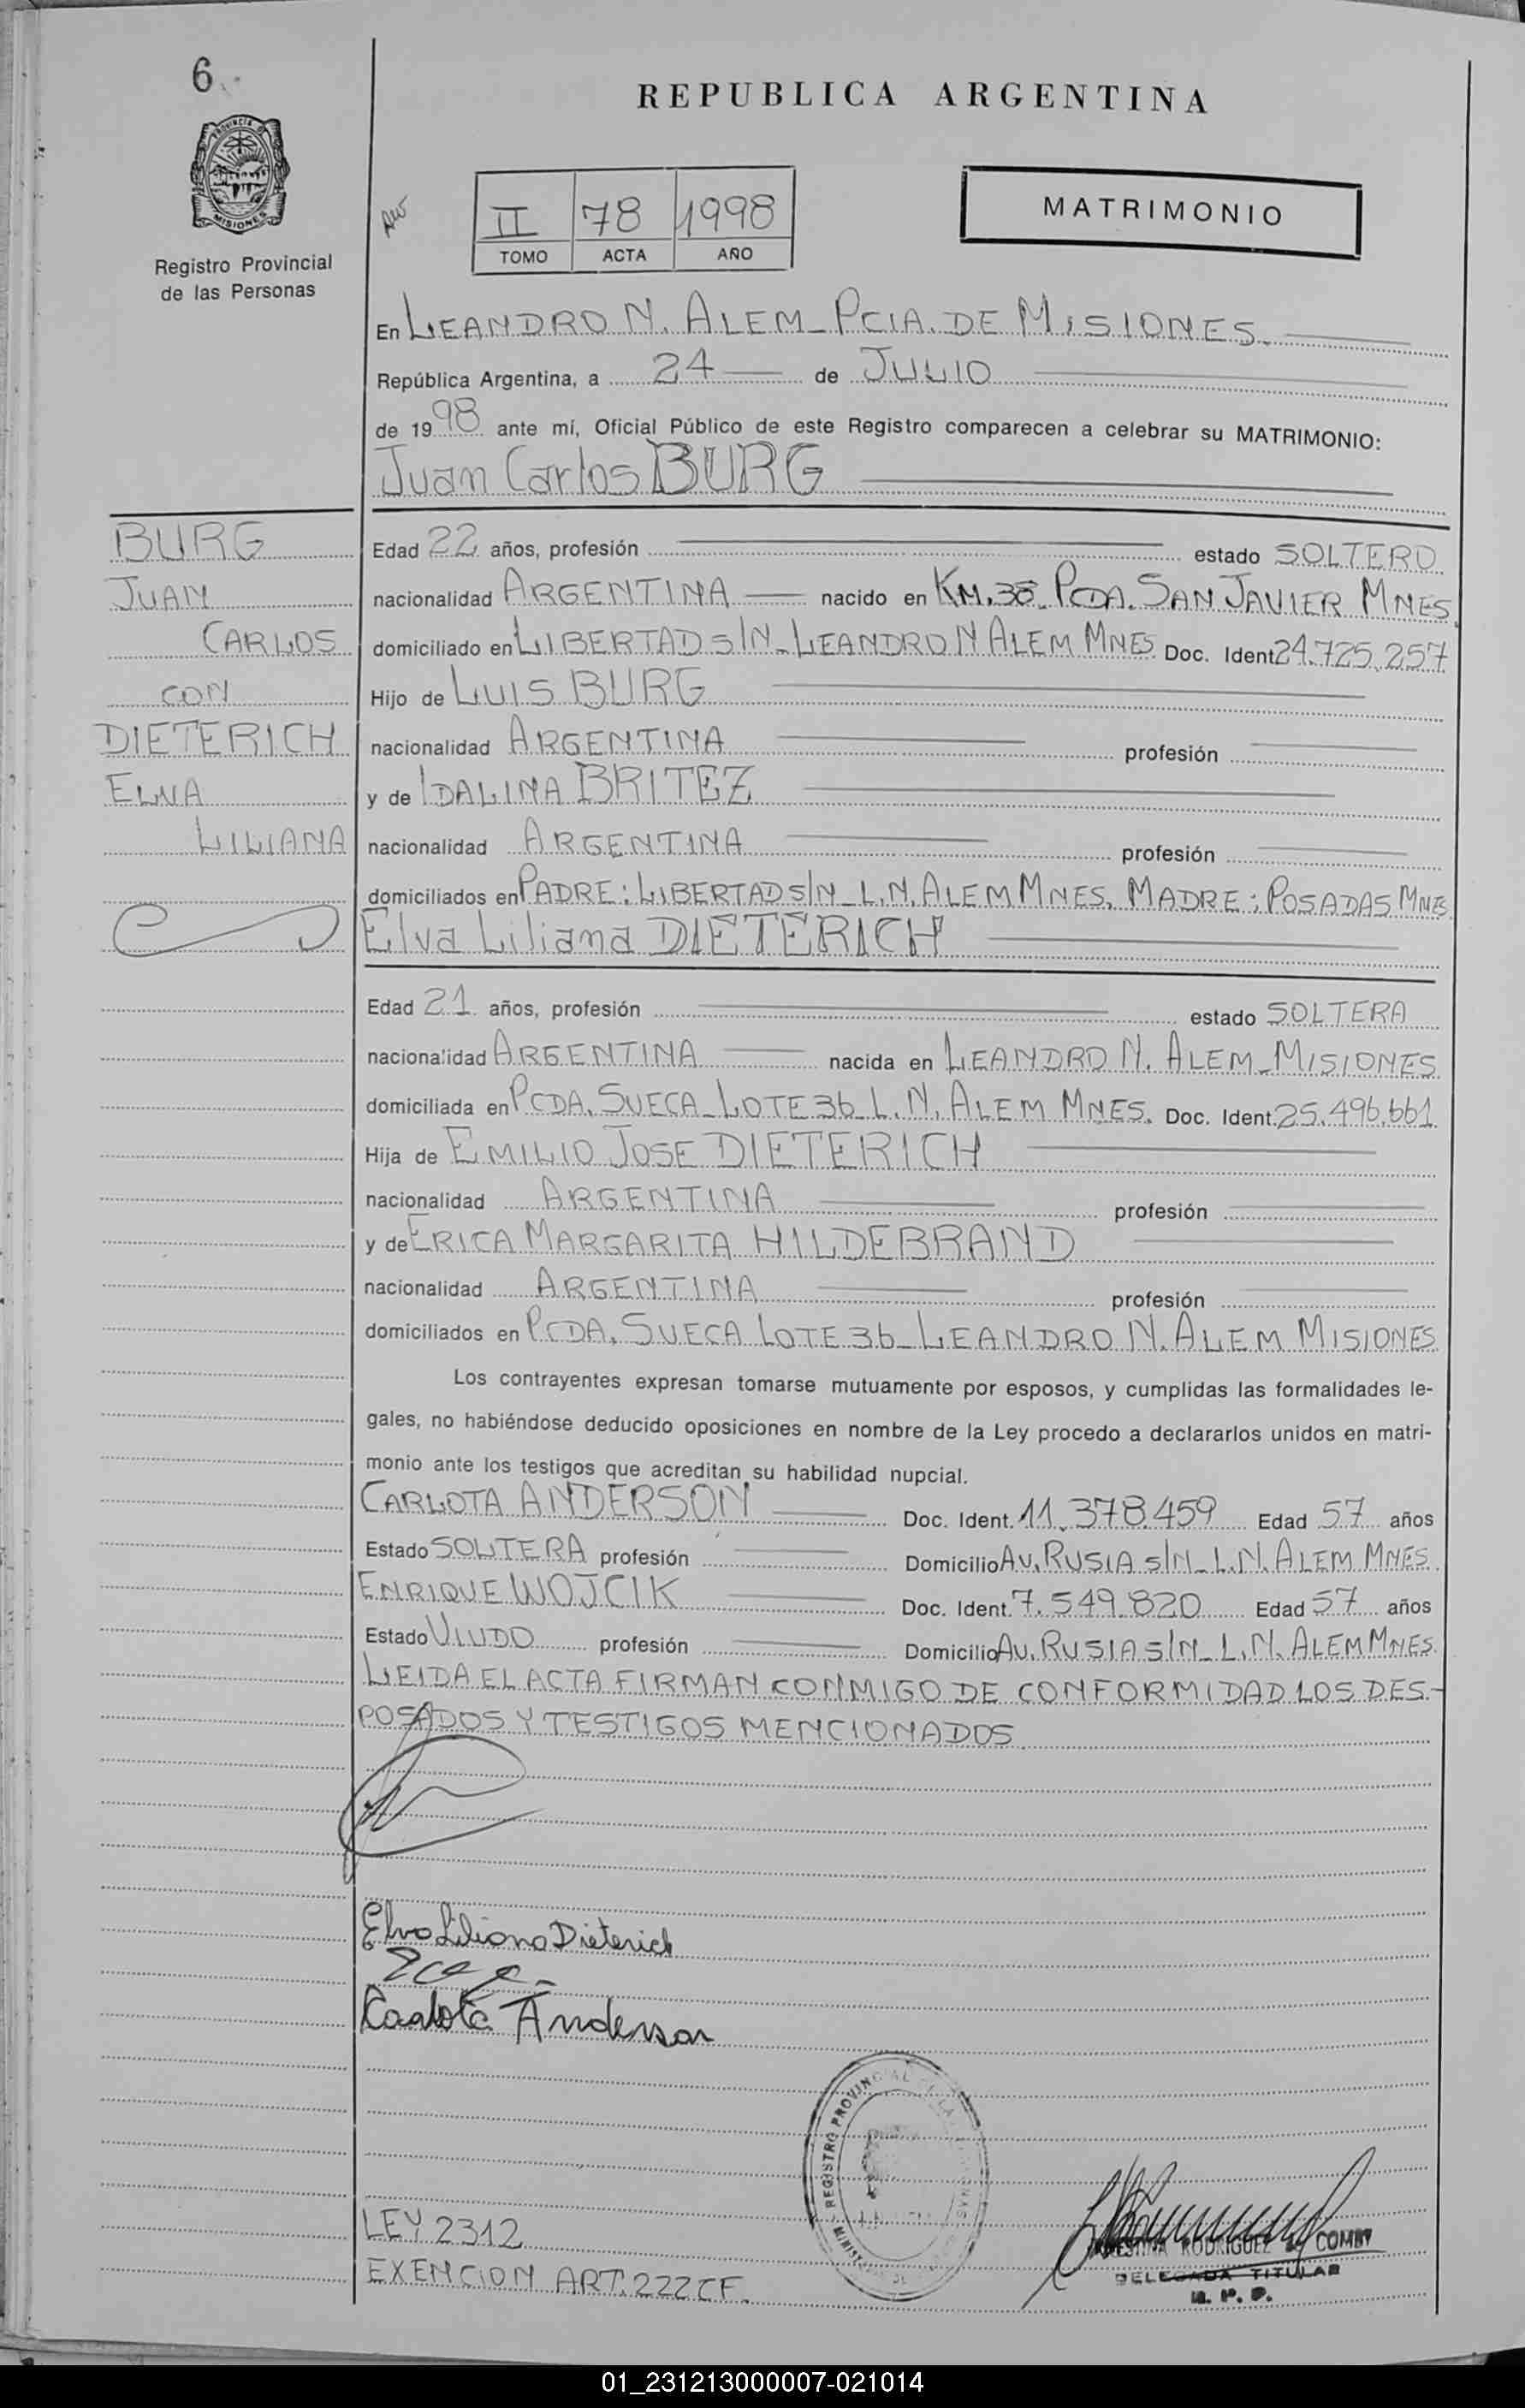 6
REPUBLICA ARGENTINA
PROVINCIA DE
MISIONES
Registro Provincial
de las Personas
II 78 1998
TOMO ACTA AÑO
MATRIMONIO
En LEANDRO N. ALEM_PCIA. DE MISIONES.
República Argentina, a 24 de JULIO
de 1998 ante mí, Oficial Público de este Registro comparecen a celebrar su MATRIMONIO:
Juan Carlos BURG
BURG
JUAN
CARLOS
CON
DIETERICH
ELVA
LILIANA
Edad 22 años, profesión estado SOLTERO
nacionalidad ARGENTINA nacido en KM.38_PCDA. SAN JAVIER MNES.
domiciliado en LIBERTAD S/N_LEANDRO N ALEM MNES. Doc. Ident 24.725.257
Hijo de LUIS BURG
nacionalidad ARGENTINA profesión
y de IDALINA BRITEZ
nacionalidad ARGENTINA profesión
domiciliados en PADRE: LIBERTAD S/N_L.N.ALEM MNES. MADRE: POSADAS MNES
Elva Liliana DIETERICH
Edad 21 años, profesión estado SOLTERA
nacionalidad ARGENTINA nacida en LEANDRO N. ALEM_MISIONES
domiciliada en PCDA. SUECA_LOTE 36_L.N. ALEM MNES. Doc. Ident. 25.496.661
Hija de EMILIO JOSE DIETERICH
nacionalidad ARGENTINA profesión
y de ERICA MARGARITA HILDEBRAND
nacionalidad ARGENTINA profesión
domiciliados en PCDA. SUECA LOTE 36_LEANDRO N. ALEM MISIONES
Los contrayentes expresan tomarse mutuamente por esposos, y cumplidas las formalidades le-
gales, no habiéndose deducido oposiciones en nombre de la Ley procedo a declararlos unidos en matri-
monio ante los testigos que acreditan su habilidad nupcial.
CARLOTA ANDERSON Doc. Ident. 11.378.459 Edad 57 años
Estado SOLTERA profesión Domicilio AV. RUSIA S/N_L.N. ALEM MNES.
ENRIQUE WOJCIK Doc. Ident. 7.549.820 Edad 57 años
Estado VIUDO profesión Domicilio AV. RUSIA S/N_L.N. ALEM MNES.
LEIDA EL ACTA FIRMAN CONMIGO DE CONFORMIDAD LOS DES-
POSADOS Y TESTIGOS MENCIONADOS.
Elva Liliana Dieterich
Carlota Anderson
REGISTRO PROVINCIAL
LEY 2312
EXENCION ART. 222 CF.
RODRIGUEZ
DELEGADA TITULAR
R. P. P.
01_231213000007-021014